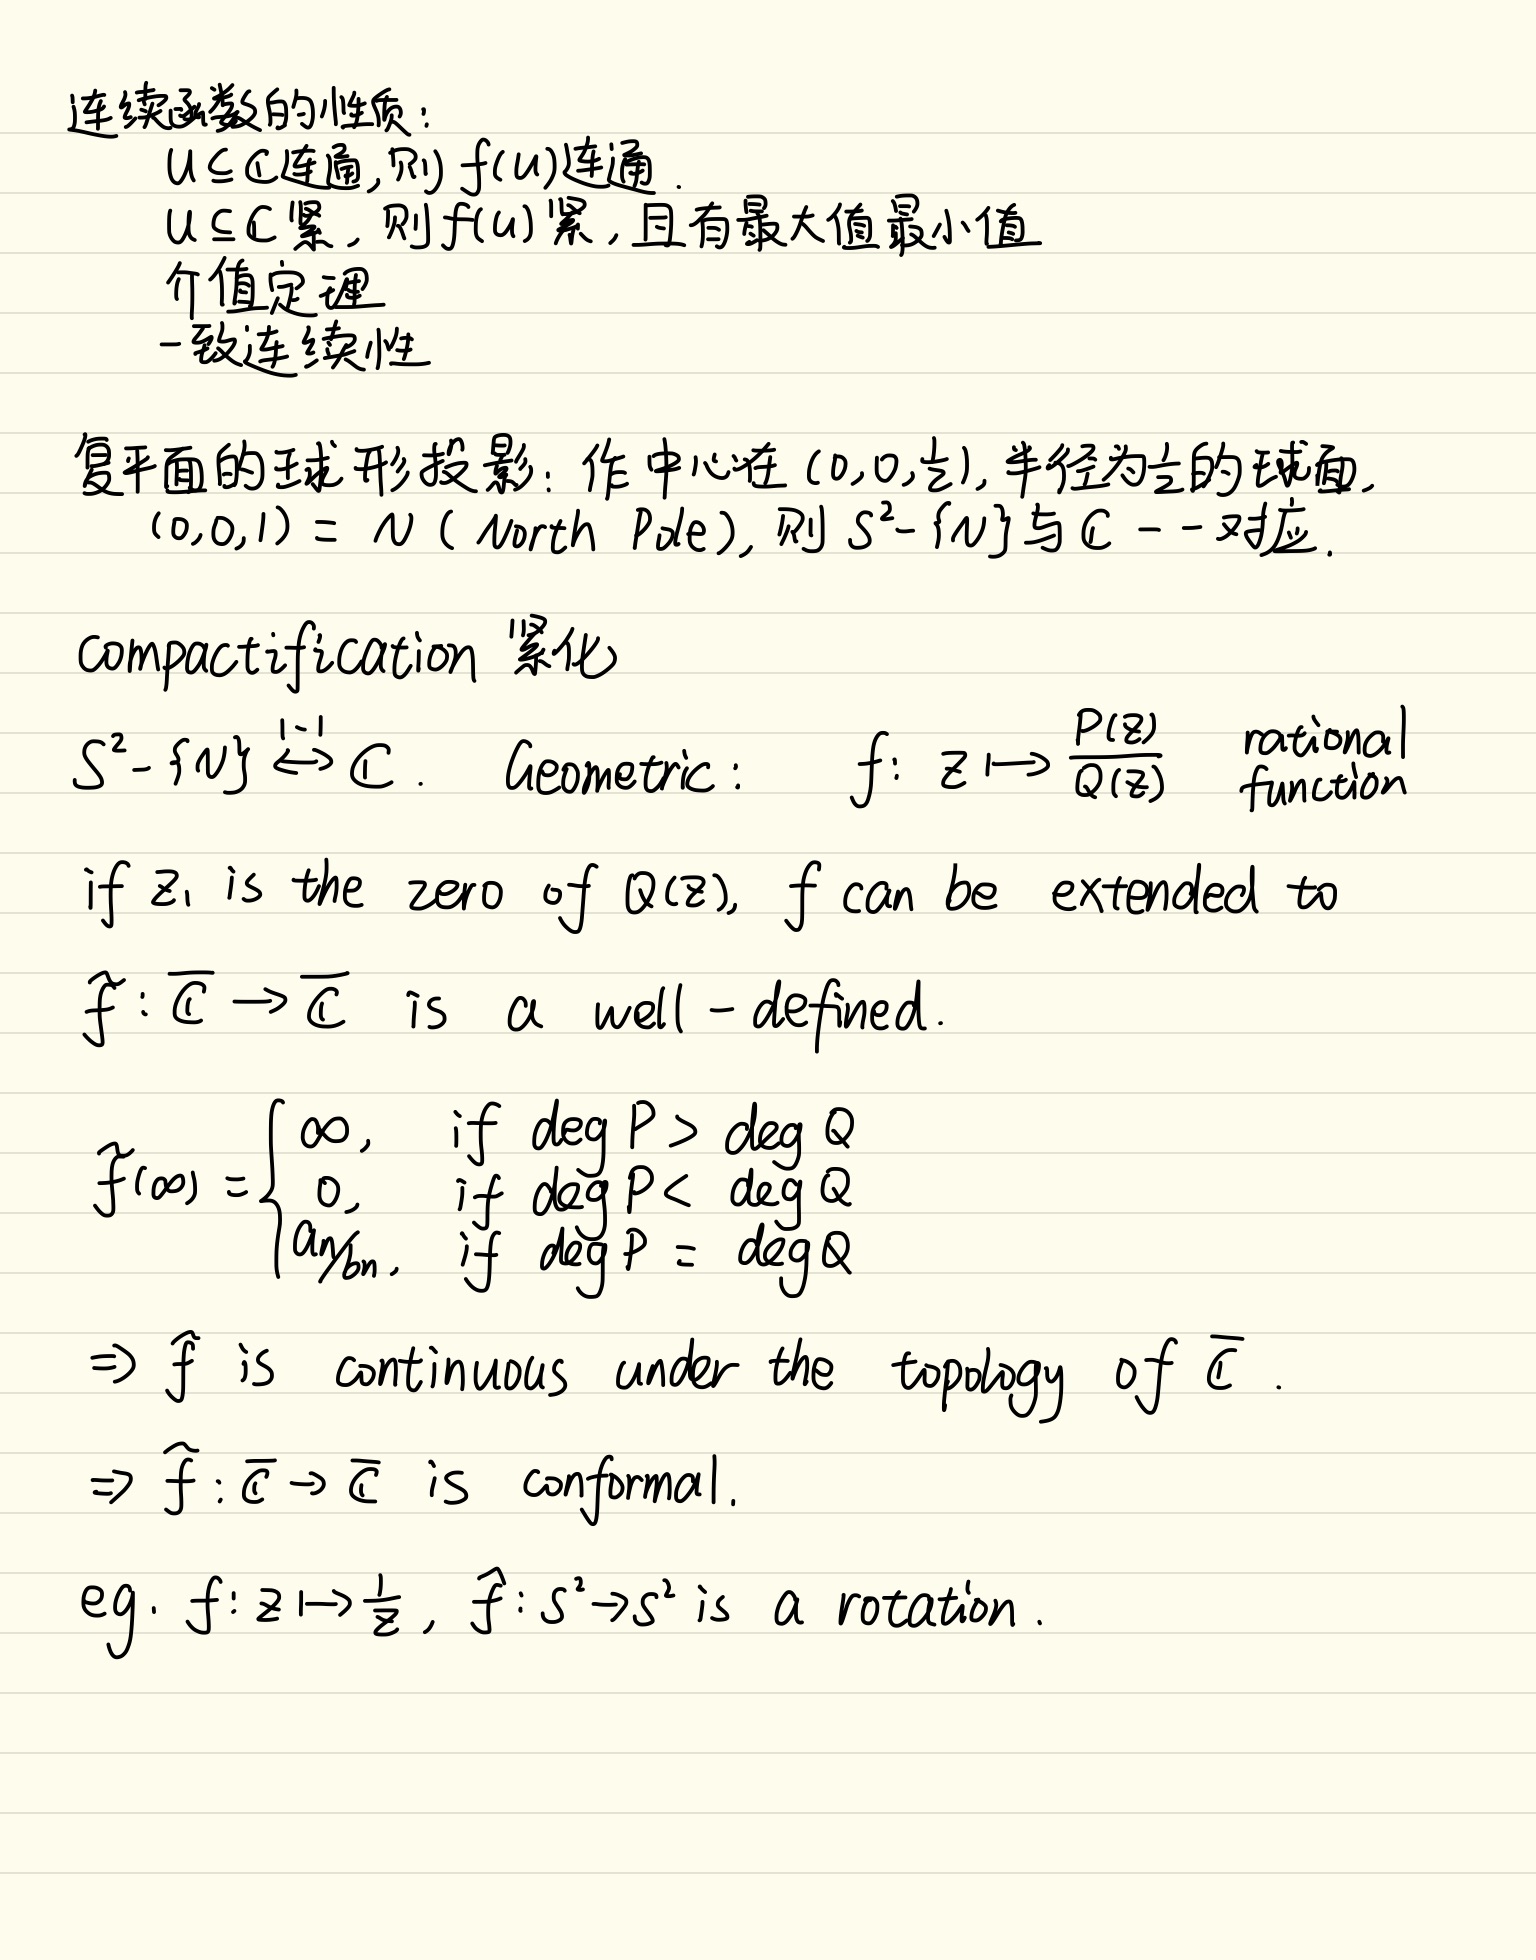 连续函数的性质:
U⊆ℂ连通,则 f(U)连通.
U⊆ℂ紧, 则f(U)紧,且有最大值最小值
介值定理
一致连续性
复平面的球形投影: 作中心在 (0,0,½), 半径为½的球面,
(0,0,1) = N ( North Pole), 则 S²-{N}与 ℂ 一一对应.
Compactification 紧化
S²-{N} ↔(1-1) ℂ. Geometric: f: z ↦ P(z)/Q(z) rational function
if z₁ is the zero of Q(z), f can be extended to
f̂ : ℂ̅ → ℂ̅ is a well-defined.
f̃(∞) = { ∞, if deg P > deg Q
0, if deg P < deg Q
an/bn, if deg P = deg Q
⇒ f̂ is continuous under the topology of ℂ̅ .
⇒ f̂ : ℂ̅ → ℂ̅ is conformal.
eg. f: z ↦ 1/z, f̂: S²→S² is a rotation.